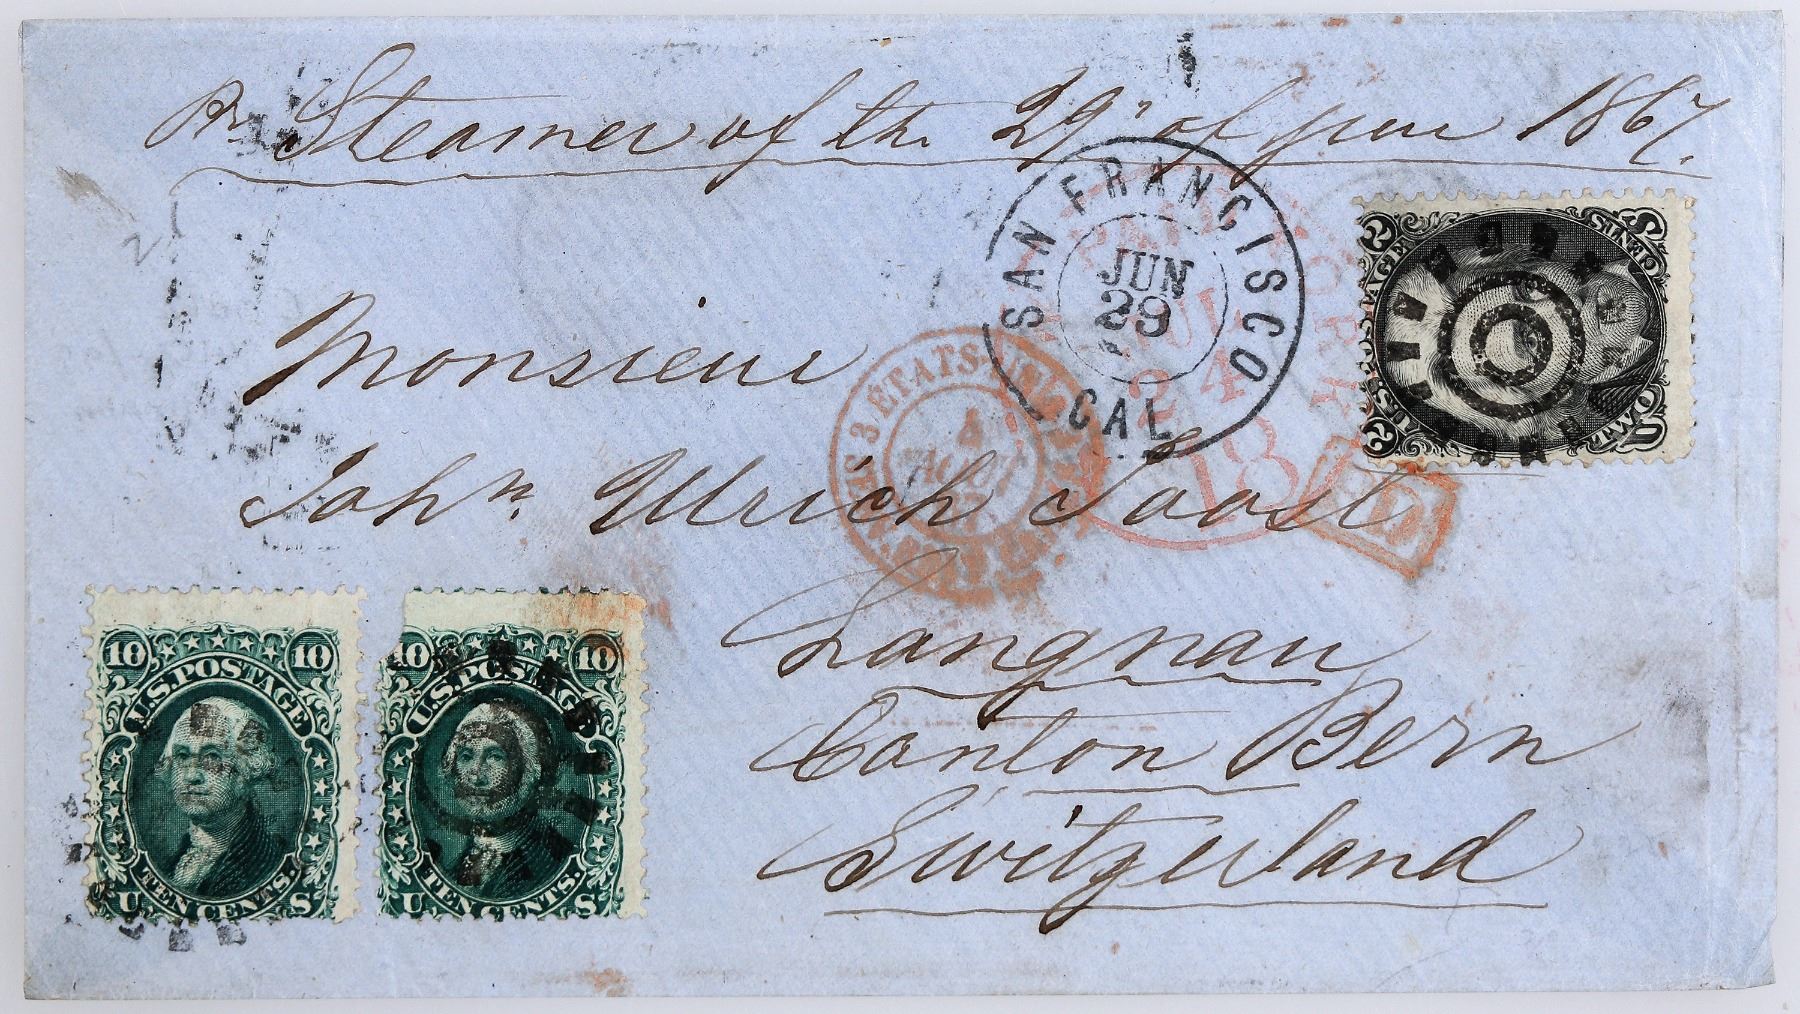 Pr Steamer of the 29' of June 1867.
SAN FRANCISCO
JUN
29
CAL
NEW YORK
PAID
JUL
24
18
2 2
U.S. POSTAGE
CENTS
Monsieur
ETATS-UNIS
4
AOUT
67
PD
Joh n. Ulrich Joost
Langnau
Canton Bern
Switzerland
10 10
U.S. POSTAGE
TEN CENTS.
U S
10 10
U.S. POSTAGE
TEN CENTS.
U S